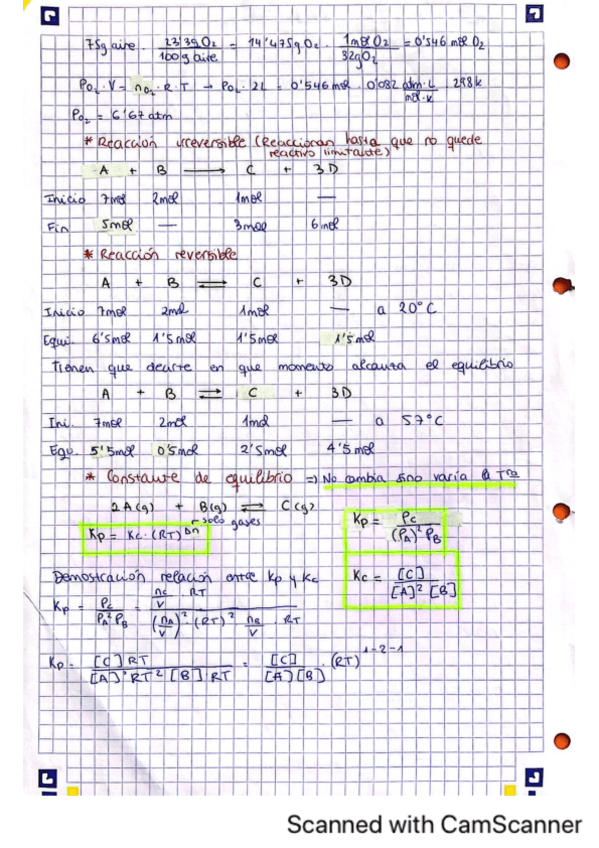 75g aire · 23'3g O₂ / 100g aire = 17'475g O₂ · 1mol O₂ / 32g O₂ = 0'546 mol O₂
P_O₂ · V = n_O₂ · R · T → P_O₂ · 2L = 0'546 mol · 0'082 atm·L / mol·K · 298k
P_O₂ = 6'67 atm
* Reacción irreversible (Reaccionan hasta que no quede
reactivo limitante)
A + B → C + 3D
Inicio 7mol 2mol 1mol —
Fin 5mol — 3mol 6mol
* Reacción reversible
A + B ⇌ C + 3D
Inicio 7mol 2mol 1mol — a 20°C
Equi. 6'5mol 1'5mol 1'5mol 1'5mol
Tienen que decirte en que momento alcanza el equilibrio
A + B ⇌ C + 3D
Ini. 7mol 2mol 1mol — a 57°C
Equ. 5'5mol 0'5mol 2'5mol 4'5mol
* Constante de equilibrio => No cambia sino varía la Tra
2A(g) + B(g) ⇌ C(g)
Kp = Kc · (RT)^Δn → solo gases
Kp = Pc / (PA)² PB
Kc = [C] / [A]² [B]
Demostración relación entre Kp y Kc
Kp = Pc / PA² PB = nc/V · RT / (nA/V)² · (RT)² · nB/V · RT
Kp = [C] RT / [A]² RT² [B] · RT = [C] / [A] [B] · (RT)^1-2-1
Scanned with CamScanner